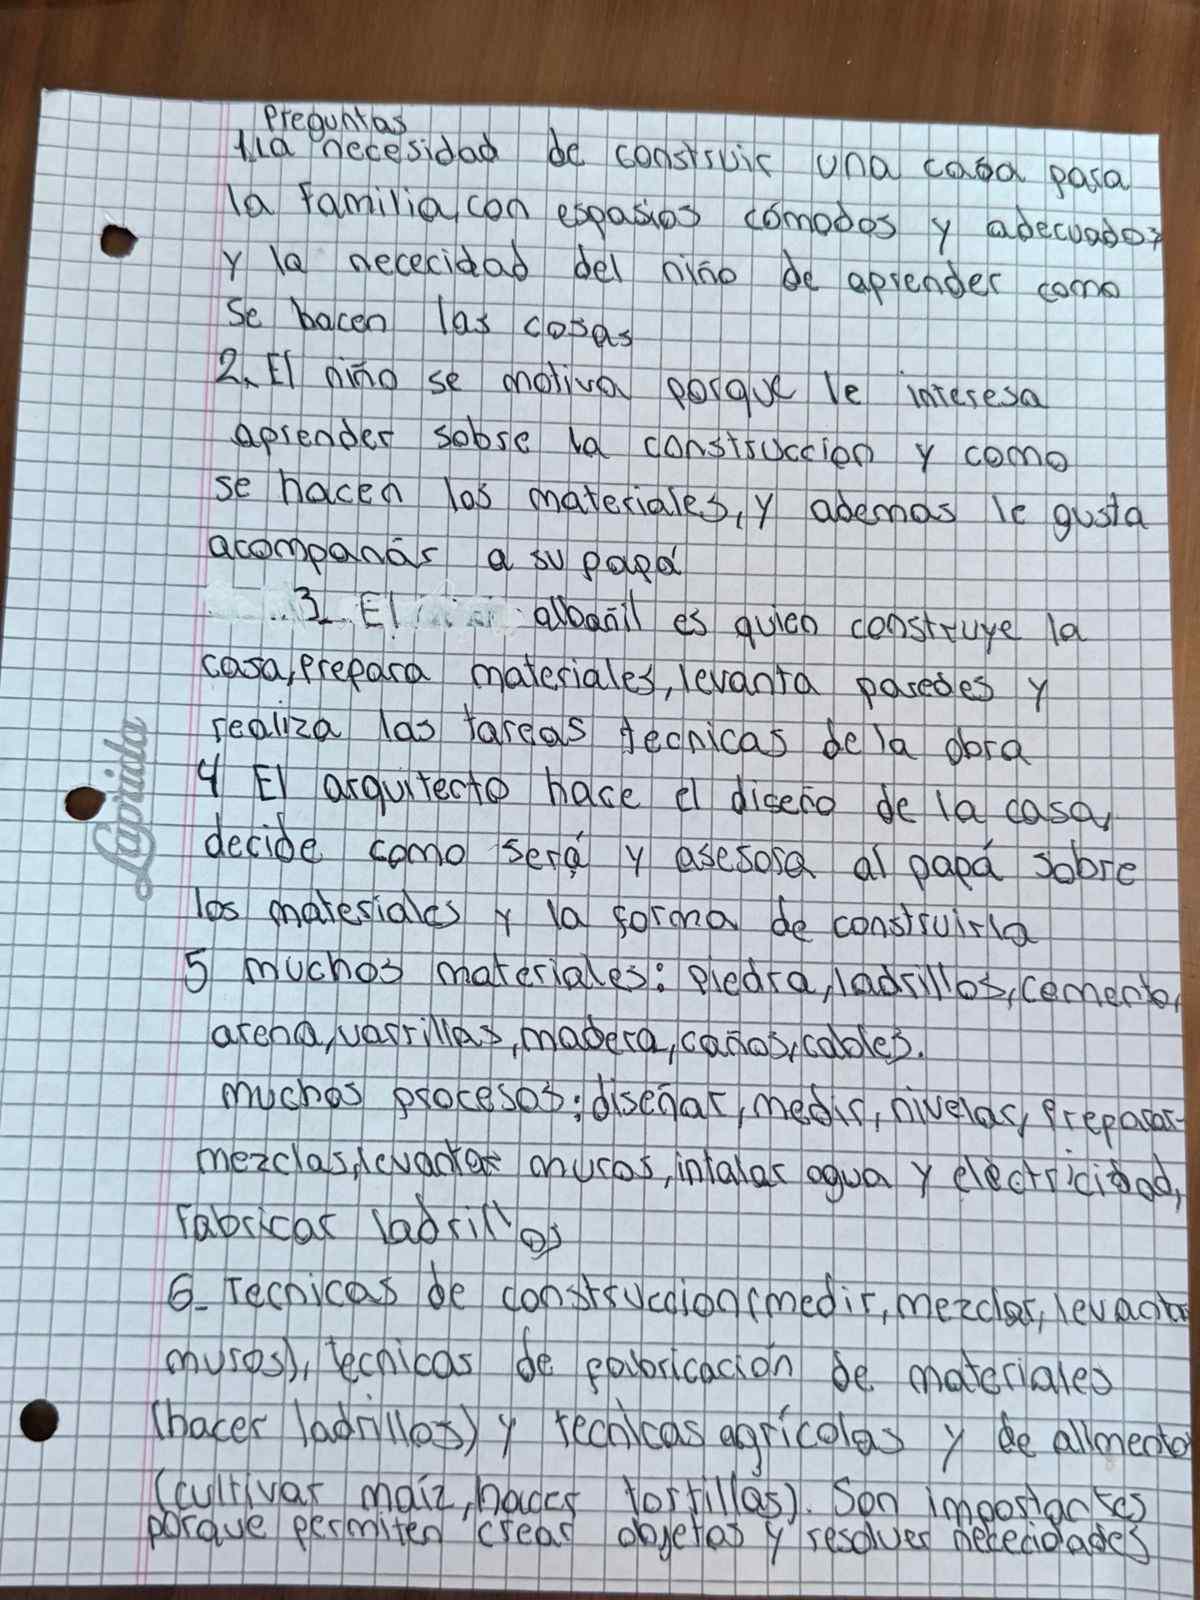 Preguntas
1. La necesidad de construir una casa para
la familia, con espasios cómodos y adecuados
y la nececidad del niño de aprender como
se hacen las cosas
2. El niño se motiva porque le interesa
aprender sobre la construccion y como
se hacen los materiales, y ademas le gusta
acompañar a su papá
3. El albañil es quien construye la
casa, prepara materiales, levanta paredes y
realiza las tareas tecnicas de la obra
4 El arquitecto hace el diseño de la casa,
decide como será y asesora al papá sobre
los materiales y la forma de construirla
5 muchos materiales: piedra, ladrillos, cemento,
arena, varrillas, madera, caños, cables.
muchos procesos: diseñar, medir, nivelar, preparar
mezclas, levantar muros, intalar agua y electricidad,
Fabricar ladrillos
6_ Tecnicas de construccion (medir, mezclar, levantar
muros), tecnicas de fabricación de materiales
(hacer ladrillos) y tecnicas agrícolas y de alimento
(cultivar maíz, hacer tortillas). Son importantes
porque permiten crear objetos y resolver nececidades
Laprida